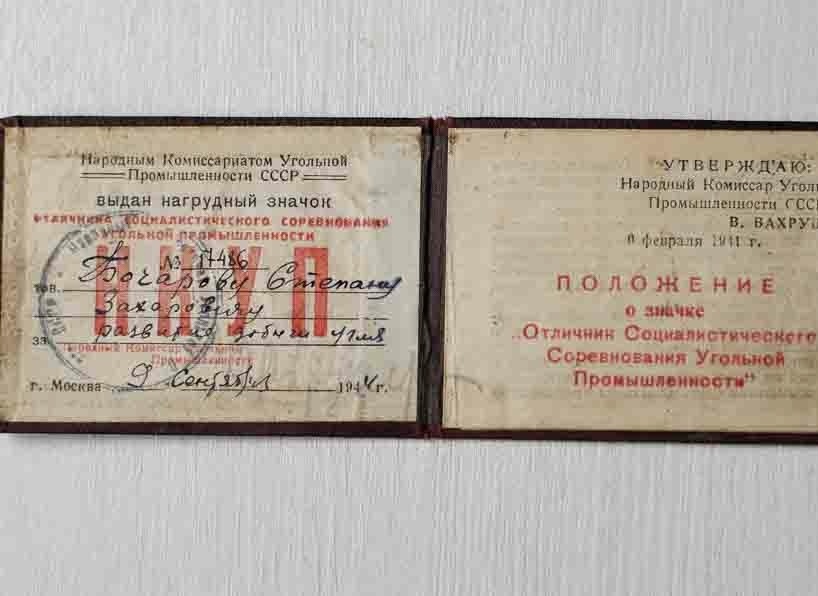 Народным Комиссариатом Угольной
Промышленности СССР
выдан нагрудный значок
ОТЛИЧНИКА СОЦИАЛИСТИЧЕСКОГО СОРЕВНОВАНИЯ
УГОЛЬНОЙ ПРОМЫШЛЕННОСТИ
НКУП
№ 17486
тов. Бочарову Степану
Захаровичу
за развитие добычи угля
Народный Комиссар Угольной
Промышленности
г. Москва 9 Сентября 1944 г.
УТВЕРЖДАЮ:
Народный Комиссар Уголь
Промышленности СССР
В. ВАХРУШ
6 февраля 1941 г.
ПОЛОЖЕНИЕ
о значке
„Отличник Социалистического
Соревнования Угольной
Промышленности"